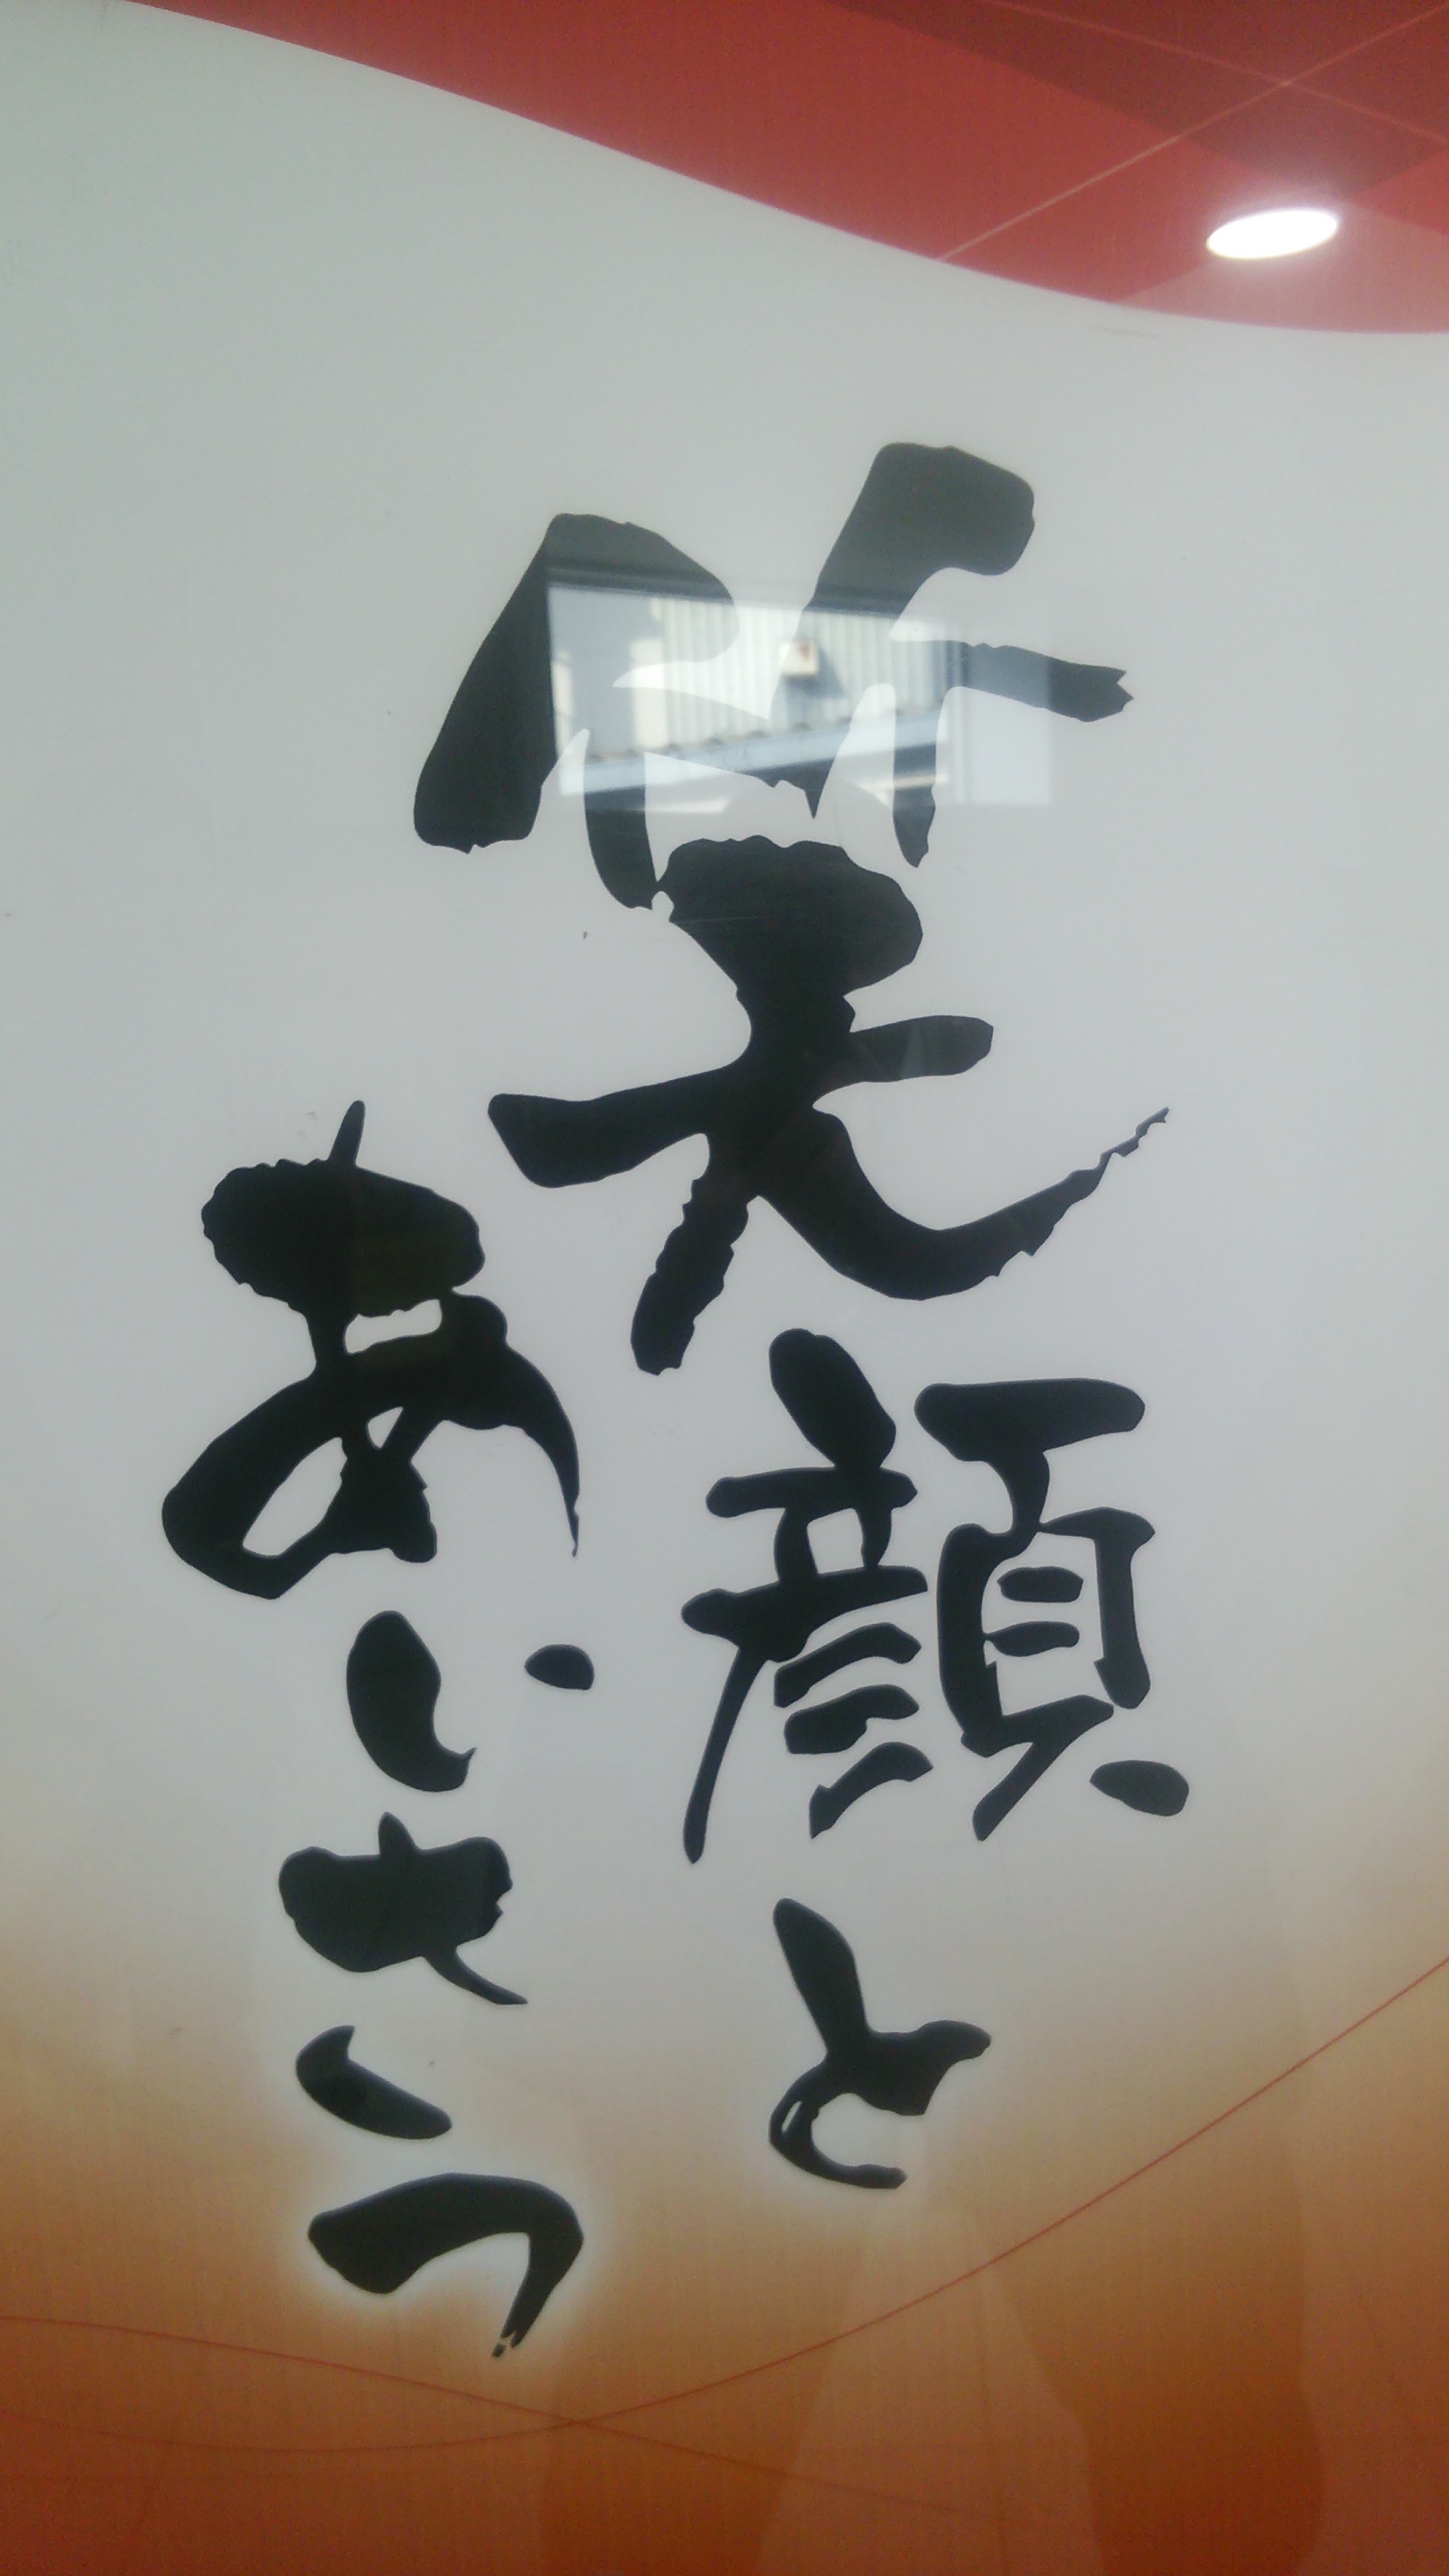 笑顔と
あいさつ